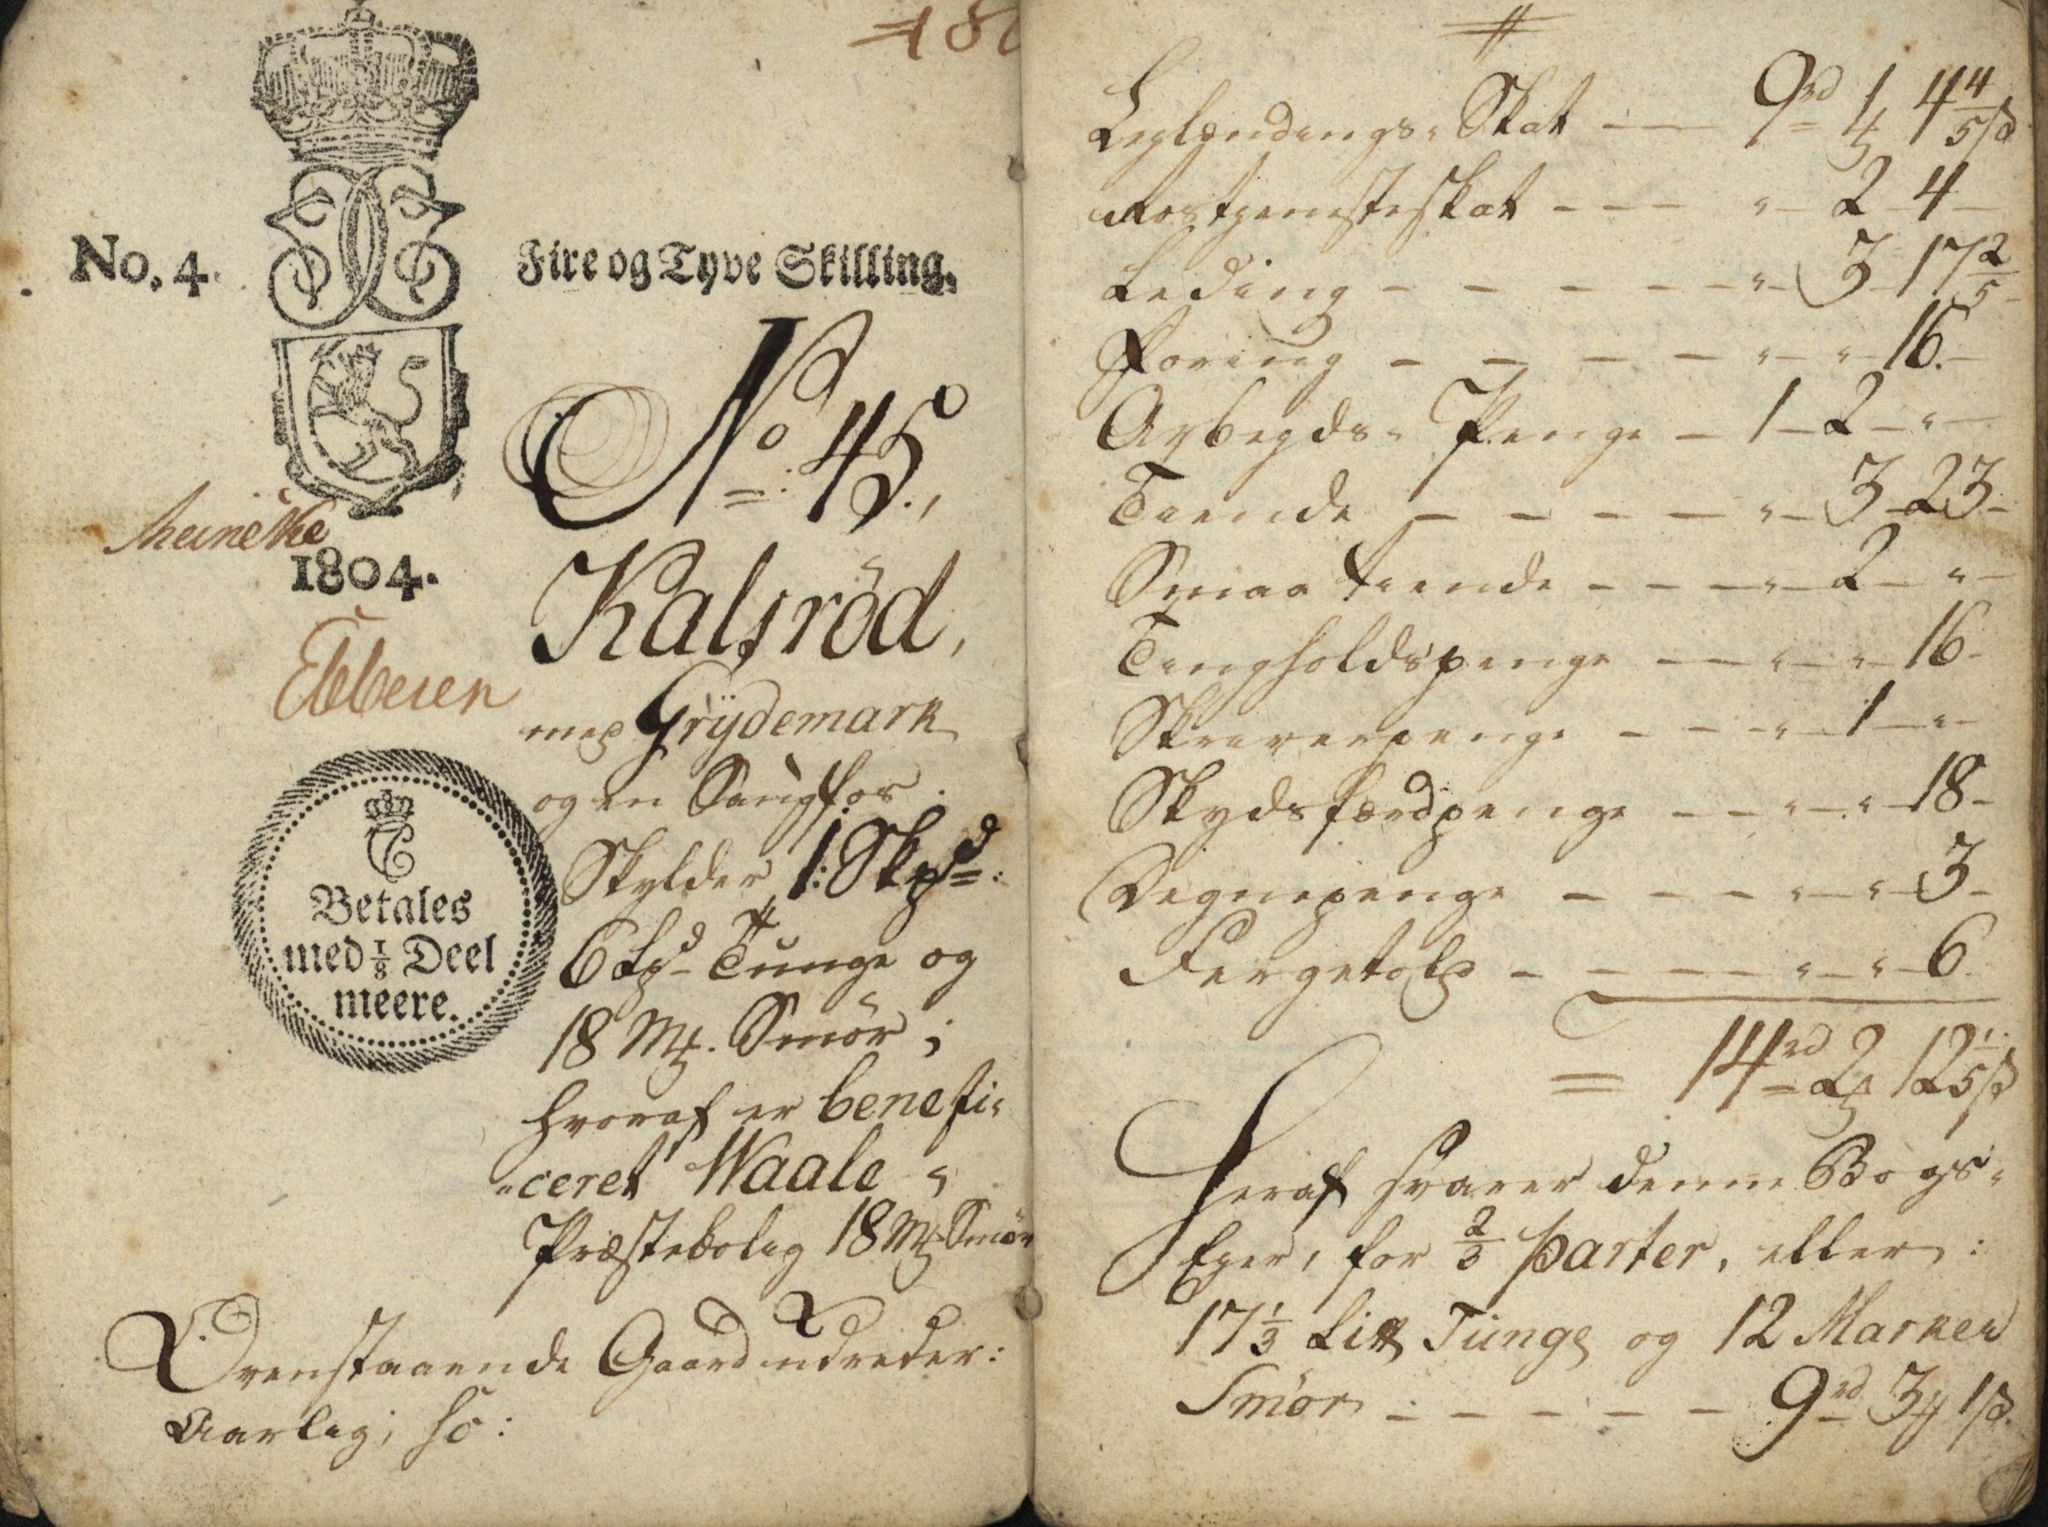 No. 4.
Fire og Tyve Skilling.
Meinche
1804.
Ebbesen
Betales
med 1/8 Deel
meere.
No: 45.,
Kalsröd,
med Grÿdemark
og en Saugfos.
Skylder 1: Skpd:
6 Lpd Tunge og
18 Mk. Smör;
hvoraf er benefi-
-ceret Waale
Præstebolig 18 Mk Smör
Ovenstaaende Gaard udreder:
Aarlig; so:
Leylændings-Skat — 9rd 1 4 4/5 s
Rostjenesteskat - - - " - 2 - 4 -
Leding - - - - - " - 3 - 17 2/5 -
Foring - - - - " - " - 16. -
Arbeyds-Penge - 1 - 2 - " -
Tiende - - - - " - 3 - 23 -
Smaa tiende - - - " - 2 - " -
Tingholdspenge - - " - " - 16 -
Skriverpenge - - - " - 1 - " -
Skydsfærdpenge - - " - " - 18 -
Degnepenge - - - " - " - 3 -
Fergetold - - - - " - " - 6.
= 14rd 2 12 1/5 s
Heraf svarer denne Bogs-
Eyer, for 2/3 parter, eller:
17 1/3 Lit Tunge og 12 Marker
Smör - - - - - 9rd 3 1 s.